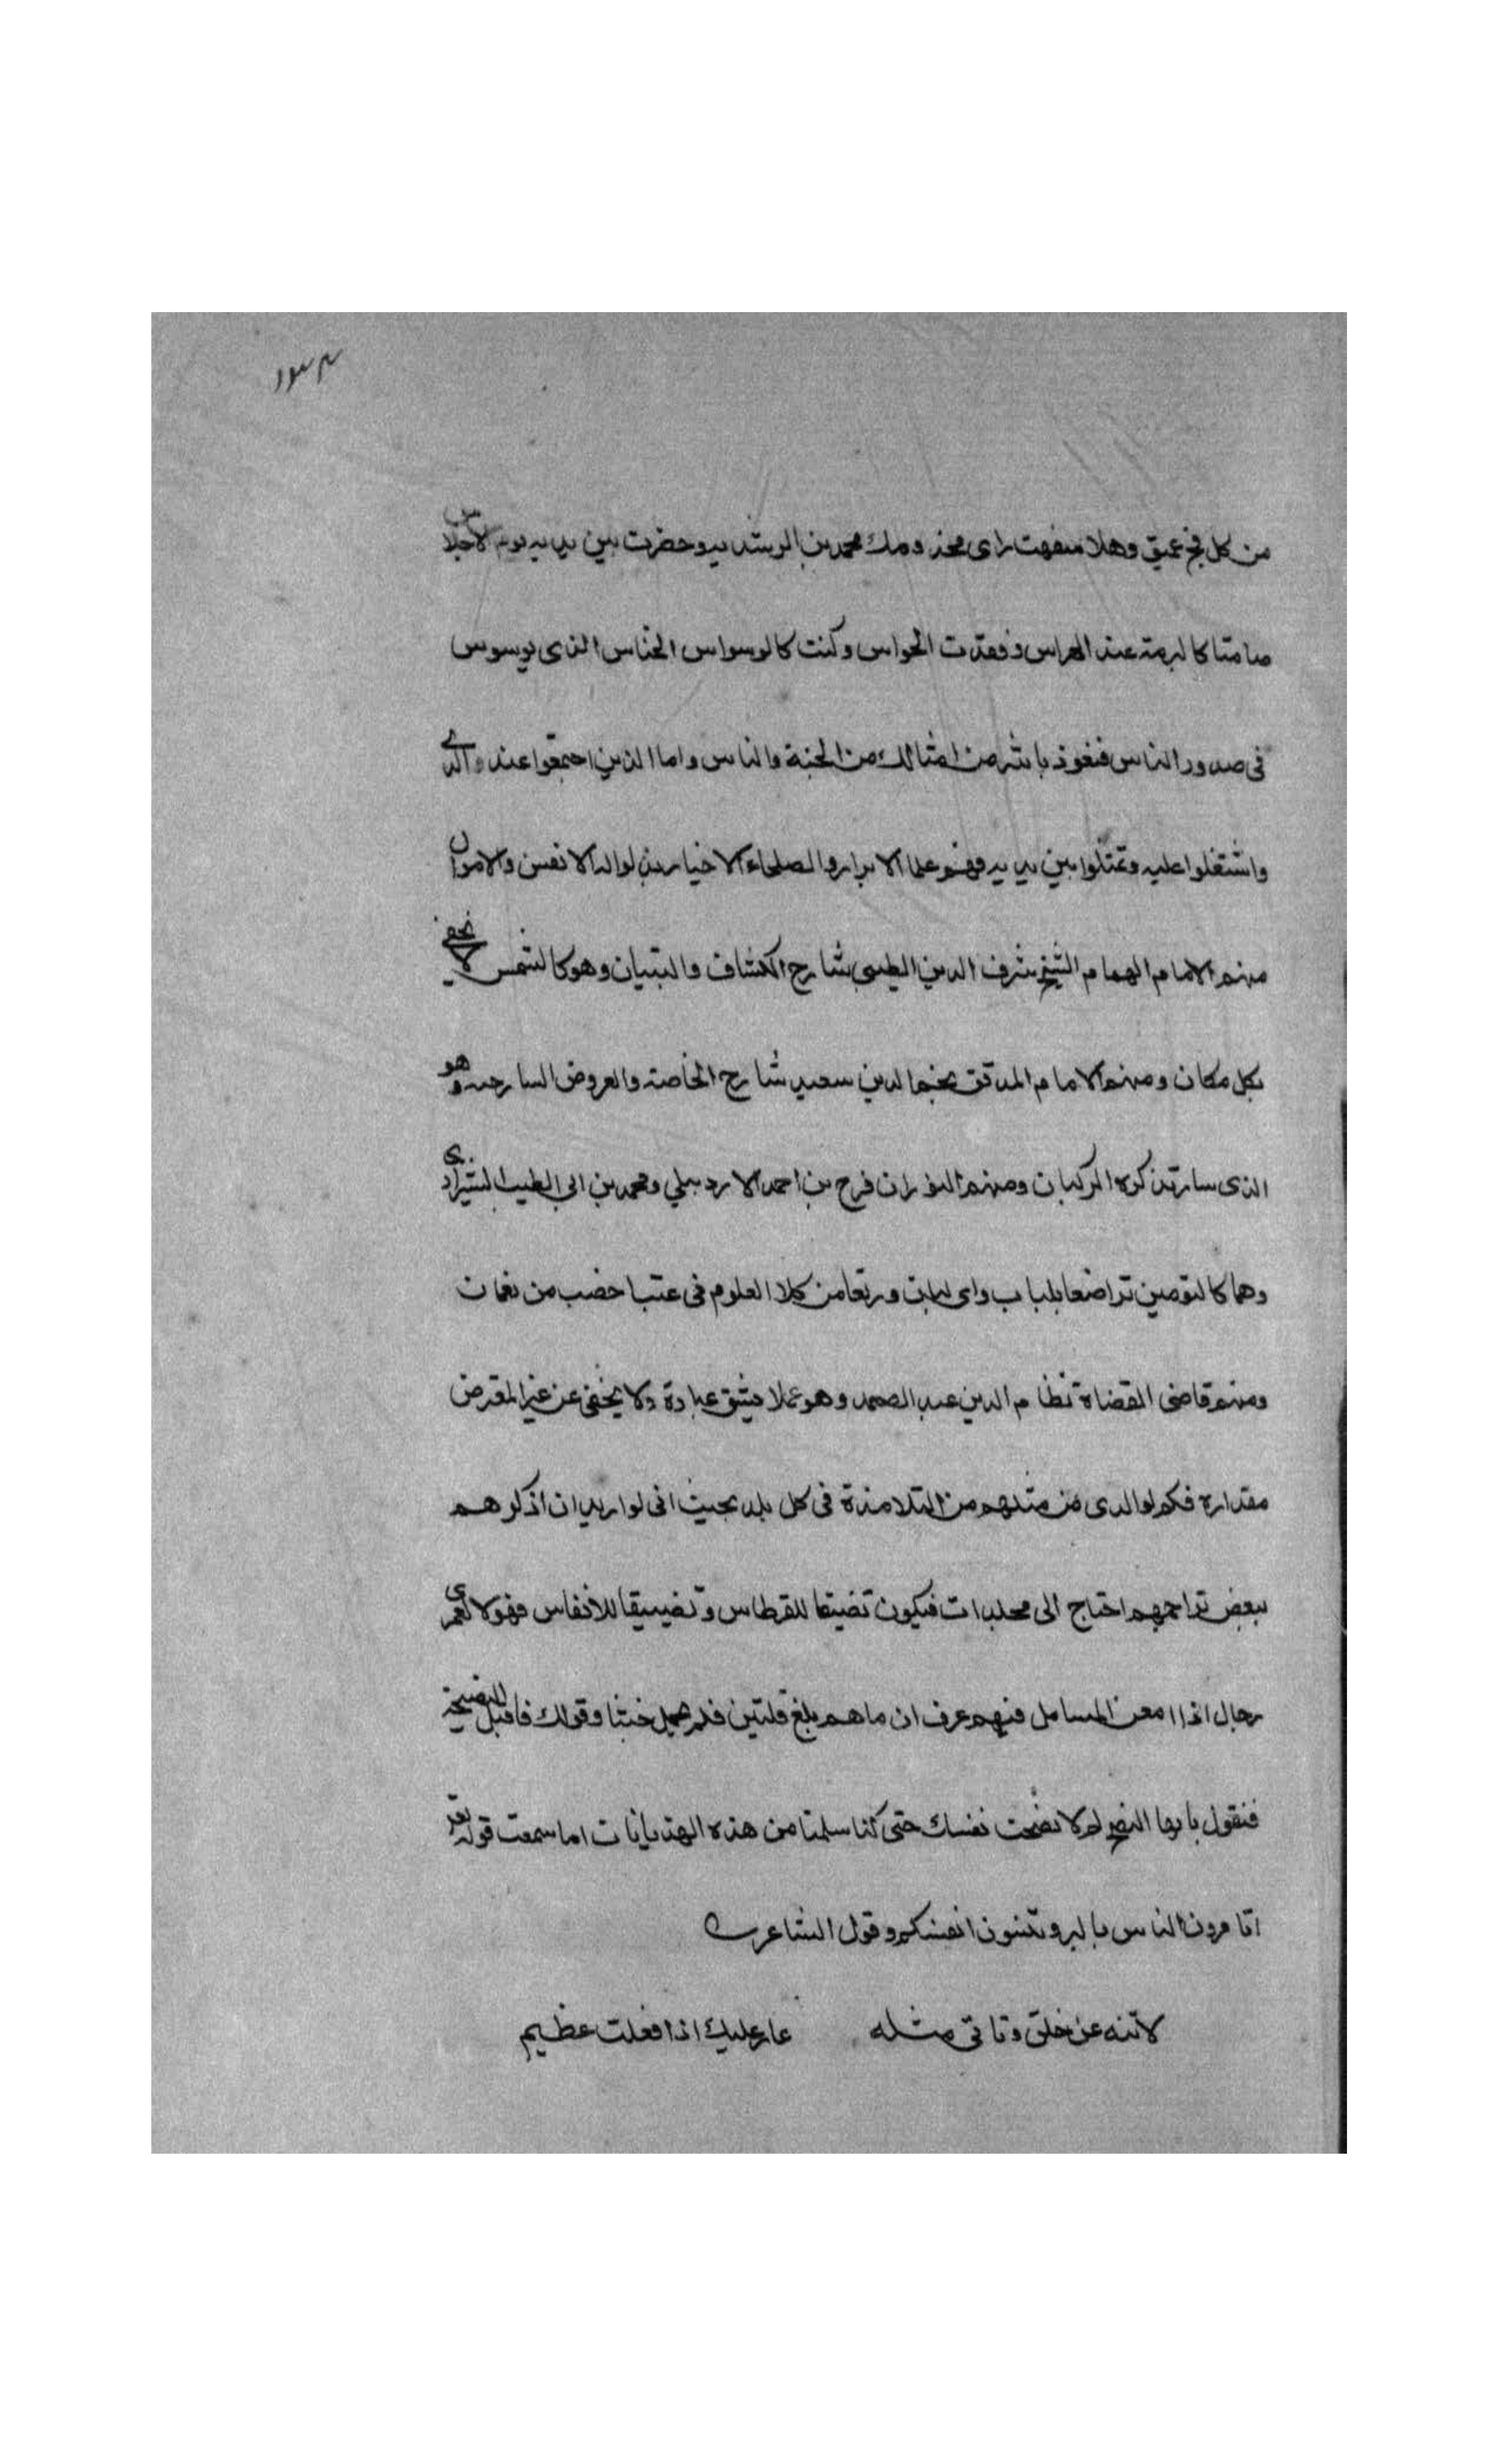 ١٣٤
من كل فج عميق وهلا سفهت راى مخدومك محمد بن الرشيد وحضرت بين يديه يوم الاجلاس
صامتا كالبرمة عند الهراس وفقدت الحواس وكنت كالوسواس الخناس الذى يوسوس
فى صدور الناس فنعوذ بالله من امثالك من الجنة والناس واما الذين اجتمعوا عند والدى
واشتغلوا عليه وتمثلوا بين يديه فهم علماء الابرار والصلحاء الاخيار بذلوا له الانفس والاموال
منهم الامام الهمام الشيخ شرف الدين الطيبى شارح الكشاف والتبيان وهو كالشمس لا يخفى
بكل مكان ومنهم الامام المدقق نجم الدين سعيد شارح الحاصبة والعروض الساوجيه وهو
الذى سارت بذكره الركبان ومنهم النوران فرج بن احمد الاردبيلي ومحمد بن ابى الطيب الشيرازى
وهما كالتومين تراضعا بلبان واى لبان ورتعا من كلا العلوم فى عشب اخضب من نعمان
ومنهم قاضى القضاة نظام الدين عبد الصمد وهو مملا يشق غبارة ولا يخفى عن غير المقرض
مقداره فكم لوالدى من مثلهم من التلامذة فى كل بلد بحيث انى لو اريد ان اذكرهم
ببعض تراجمهم احتاج الى مجلدات فيكون تضيقا للقرطاس وتضييقا للانفاس فهولا لعمرى
رجال اذا امعن المسامل فيهم عرف ان ماهم بلغ قلتين فلم يحمل خبثا وقولك فاقبل النصيحة
فنقول يا ايها النصيح لم لا نصحت نفسك حتى كنا سلمنا من هذه الهذيانات اما سمعت قوله تعالى
اتامرون الناس بالبر وتنسون انفسكم وقول الشاعر
لاتنه عن خلق وتاتى مثله عار عليك اذا فعلت عظيم